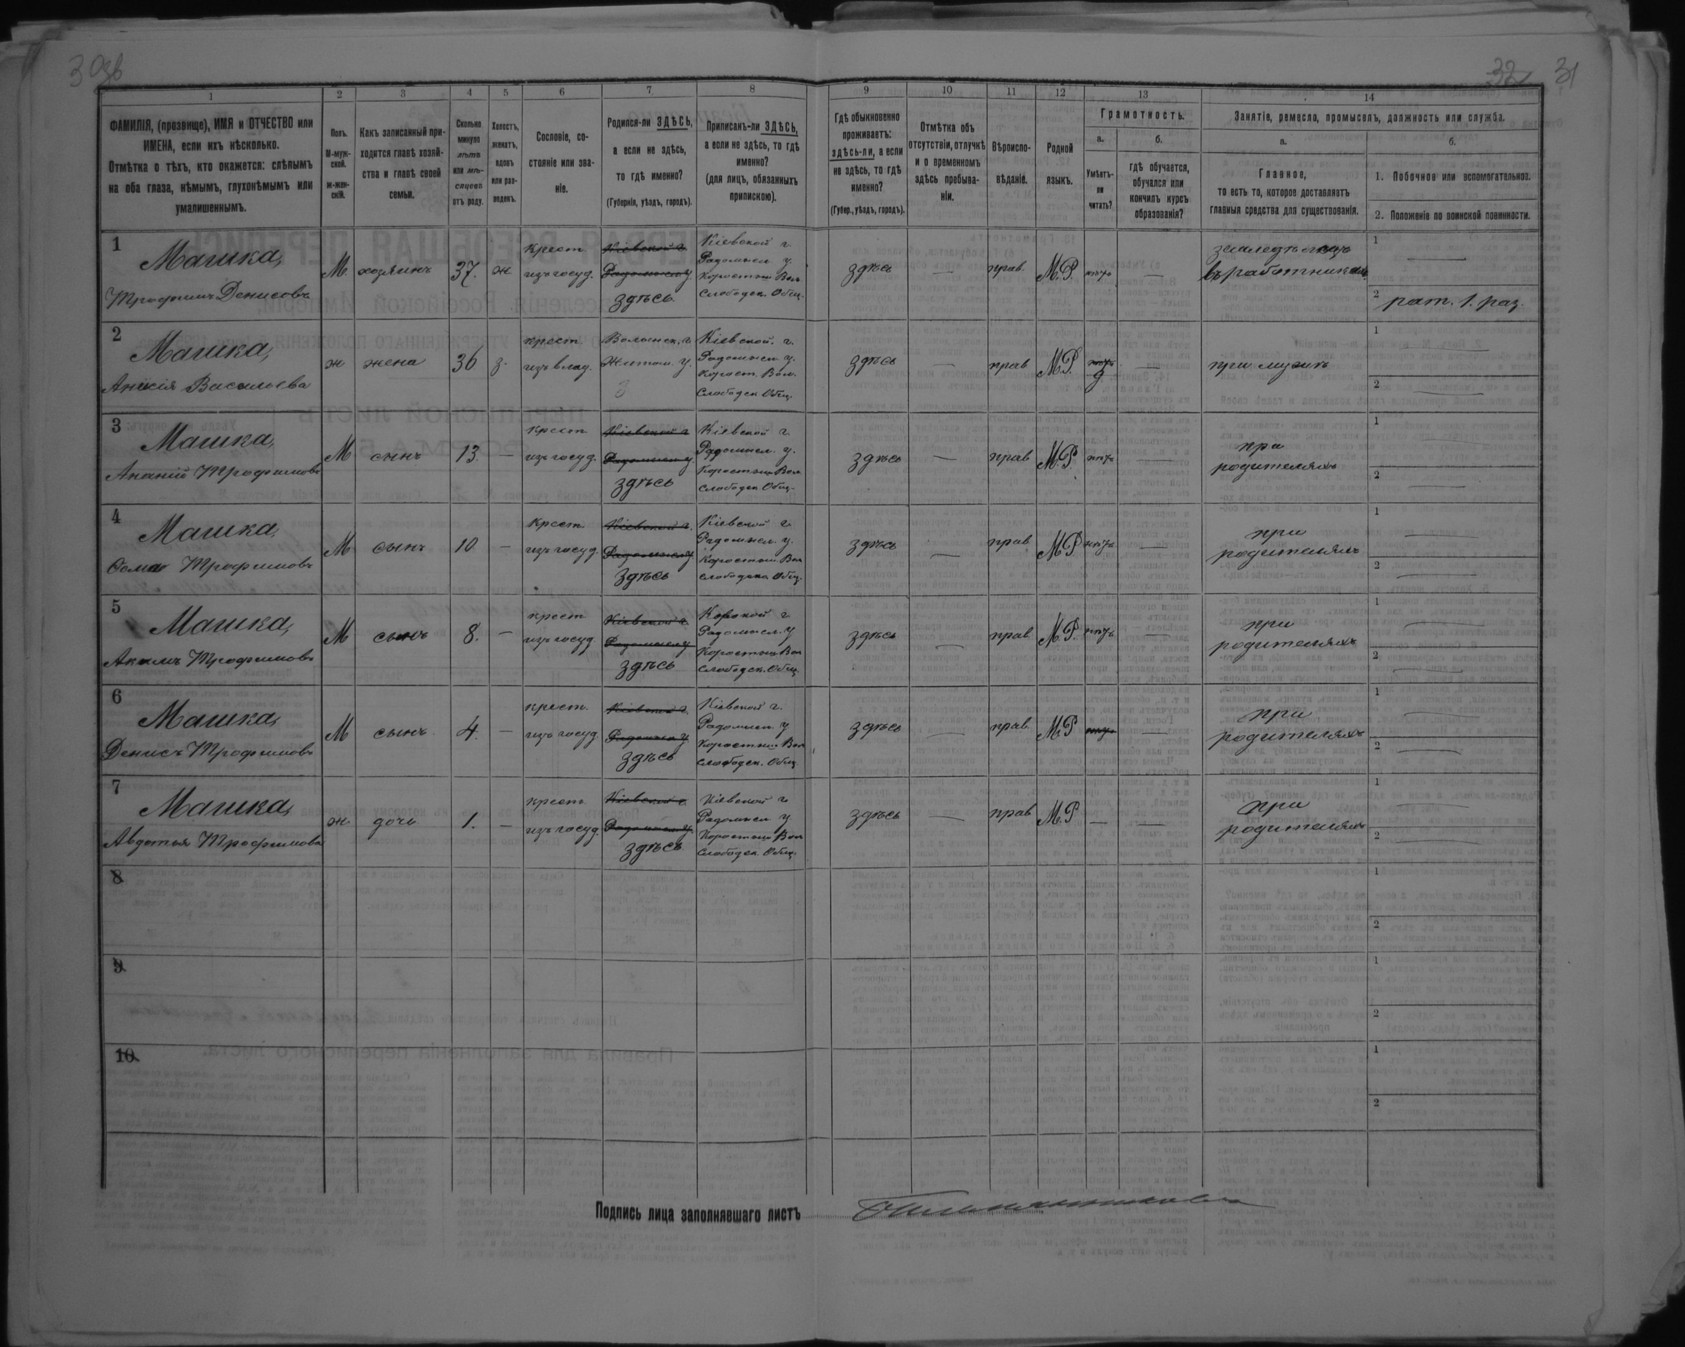 32 31
1 2 3 4 5 6 7 8 9 10 11 12 13 14
ФАМИЛІЯ, (прозвище), ИМЯ и ОТЧЕСТВО или
ИМЕНА, если ихъ нѣсколько.
Отмѣтка о тѣхъ, кто окажется: слѣпымъ
на оба глаза, нѣмымъ, глухонѣмымъ или
умалишеннымъ.
Полъ.
М-муж-
ской.
ж-жен-
скій.
Какъ записанный при-
ходится главѣ хозяй-
ства и главѣ своей
семьи.
Сколько
минуло
лѣтъ
или мѣ-
сяцевъ
отъ роду.
Холостъ,
женатъ,
вдовъ
или раз-
веденъ.
Сословіе, со-
стояніе или зва-
ніе.
Родился-ли ЗДѢСЬ,
а если не здѣсь,
то гдѣ именно?
(Губернія, уѣздъ, городъ).
Приписанъ-ли ЗДѢСЬ,
а если не здѣсь, то гдѣ
именно?
(для лицъ, обязанныхъ
припискою).
Гдѣ обыкновенно
проживаетъ:
здѣсь-ли, а если
не здѣсь, то гдѣ
именно?
(Губер., уѣздъ, городъ).
Отмѣтка объ
отсутствіи, отлучкѣ
и о временномъ
здѣсь пребыва-
ніи.
Вѣроиспо-
вѣданіе.
Родной
языкъ.
Грамотность.
а.
Умѣетъ-
ли
читать?
б.
гдѣ обучается,
обучался или
кончилъ курсъ
образованія?
Занятіе, ремесло, промыселъ, должность или служба.
а.
Главное,
то есть то, которое доставляетъ
главныя средства для существованія.
б.
1. Побочное или вспомогательное.
2. Положеніе по воинской повинности.
1
Машка,
Трофимъ Денисовъ
М хозяинъ 37. ж
крест.
изъ госуд.
Кіевской г.
Радомысл. у
здѣсь
Кіевской г.
Радомысл. у.
Коростыш. Вол.
Слободск. Общ.
здѣсь — прав. М.Р. —
земледѣлецъ
въ работникахъ
1 —
2 рат. 1. раз.
2
Машка,
Васильева
ж жена 36 з.
крест.
изъ влад.
Волынск. г.
Житом. у.
Кіевской г.
Радомысл. у.
Корост. Вол.
Слободск. Общ.
здѣсь — прав М.Р. —
при мужѣ
1 —
2 —
3
Машка,
Ананій Трофимовъ
М сынъ 13. —
крест.
изъ госуд.
Кіевской г
Радомысл. у
здѣсь
Кіевской г.
Радомысл. у.
Коростыш. Вол.
Слободск. Общ.
здѣсь — прав М.Р. —
при
родителяхъ
1 —
2 —
4
Машка,
Трофимовъ
М сынъ 10 —
крест.
изъ госуд.
Кіевской г.
Радомысл. у
здѣсь
Кіевской г.
Радомысл. у.
Коростыш. Вол
слободск. Общ.
здѣсь — прав. М.Р —
при
родителяхъ
1 —
2 —
5
Машка,
Акимъ Трофимовъ
М сынъ 8. —
крест
изъ госуд
Кіевской г
Радомысл. у
здѣсь
Кіевской г
Радомысл. у
Коростыш. Вол
Слободск. Общ.
здѣсь — прав. М.Р. —
при
родителяхъ
1 —
2 —
6
Машка,
Денисъ Трофимовъ
М сынъ 4. —
крест.
изъ госуд
Кіевской г
Радомысл. у
здѣсь
Кіевской г.
Радомысл. у
Коростыш. Вол
Слободск. Общ
здѣсь — прав. М.Р —
при
родителяхъ
1 —
2 —
7
Машка,
Авдотья Трофимова
ж. дочь 1. —
крест.
изъ госуд.
Кіевской г.
Радомысл. у.
здѣсь
Кіевской г
Радомысл. у
Коростыш. Вол
Слободск. Общ.
здѣсь — прав М.Р — —
при
родителяхъ
1 —
2 —
8
1
2
9
1
2
10
1
2
Подпись лица заполнявшаго листъ